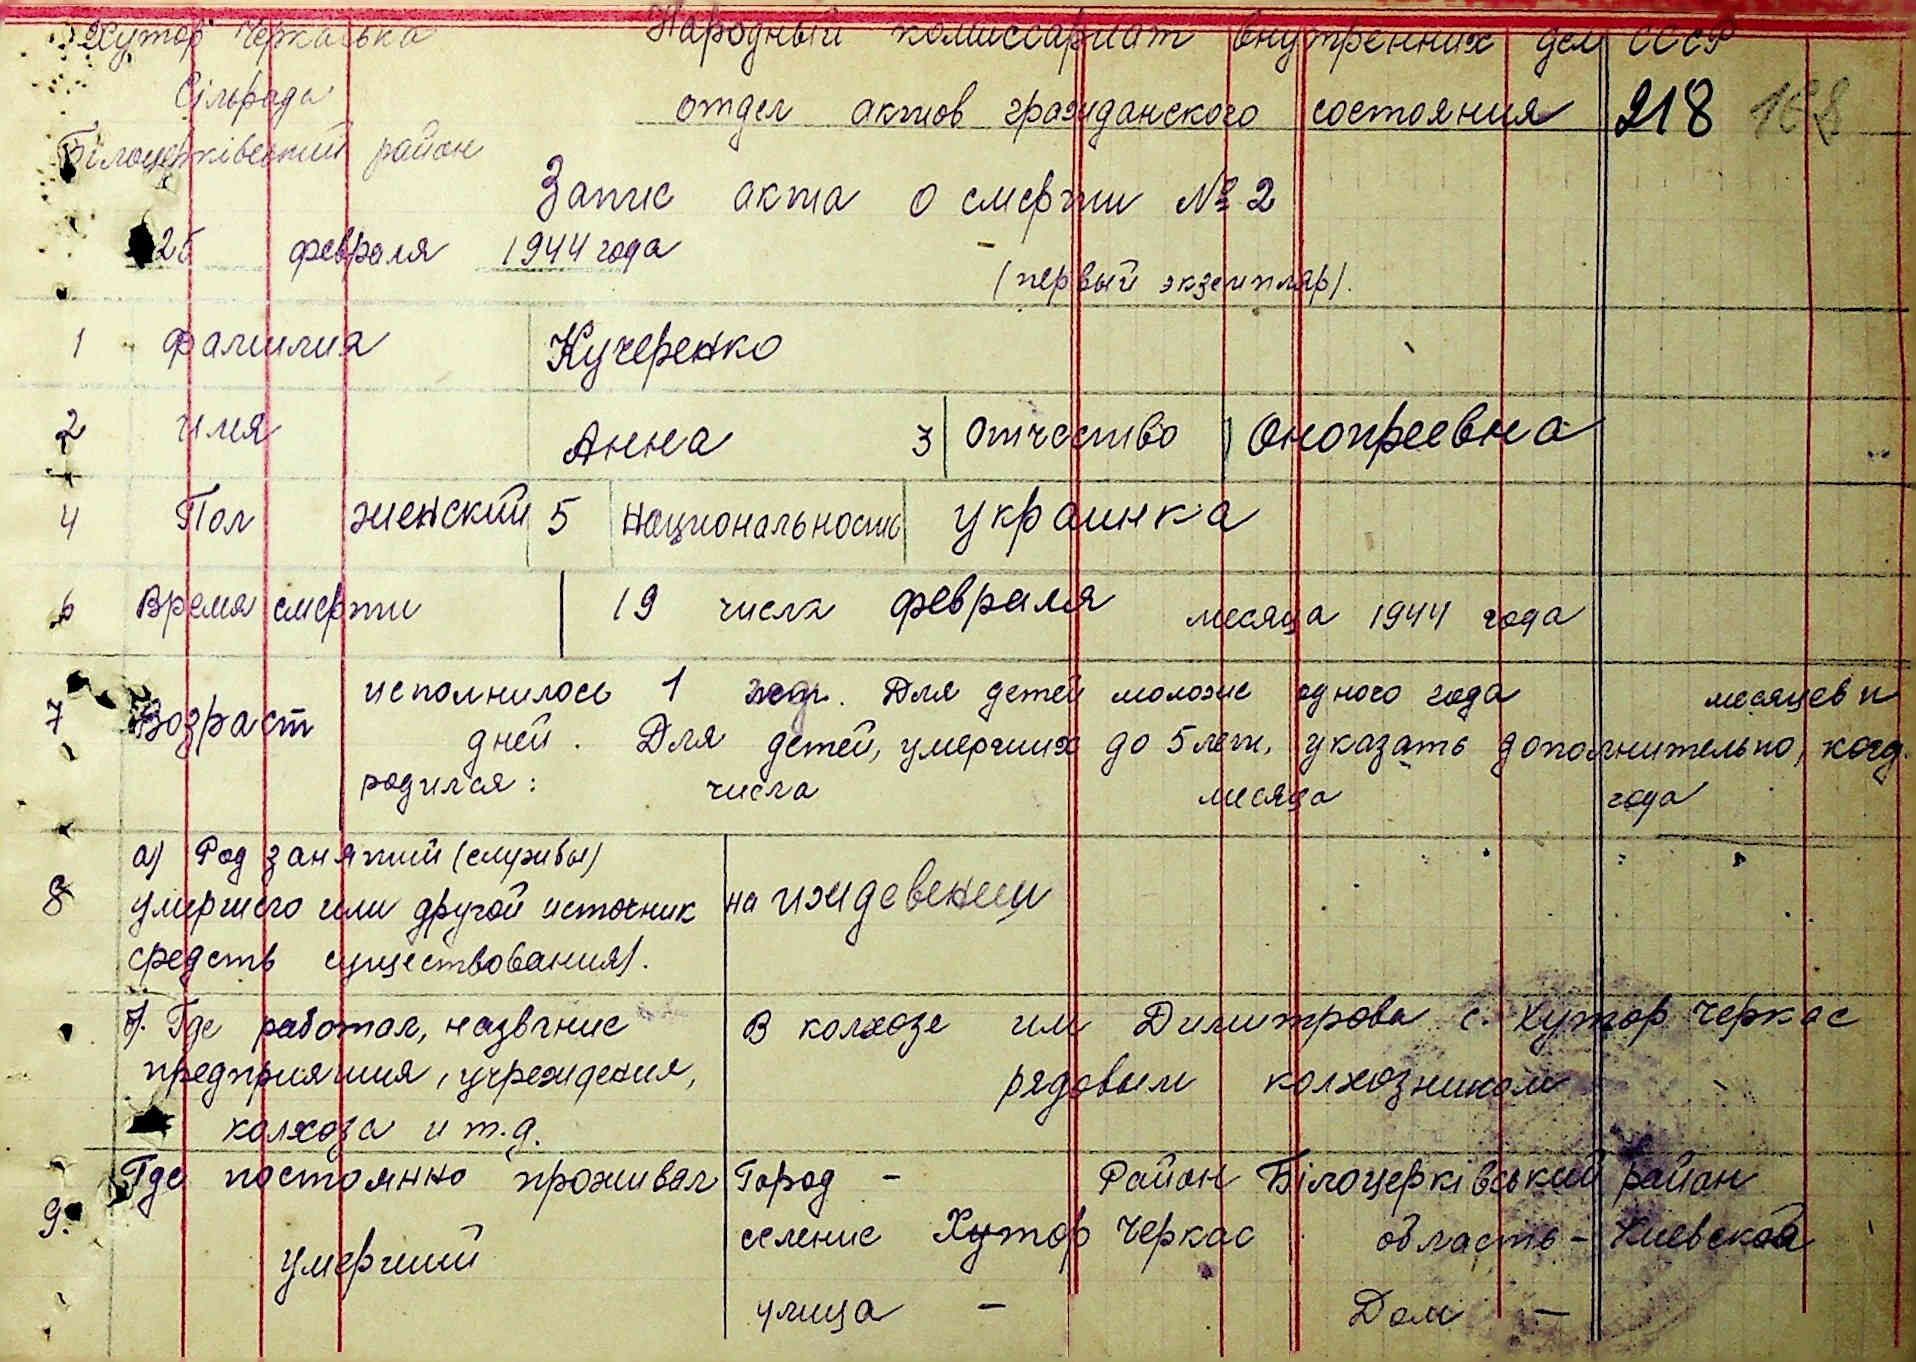 Хутор Черкаська
Сільрада
Білоцерківський район
Народный комиссариат внутренних дел СССР
отдел актов гражданского состояния 218 168
Запис акта о смерти № 2
25 февраля 1944 года
(первый экземпляр).
1 Фамилия Кучеренко
2 Имя Анна 3 Отчество Онопреевна
4 Пол женский 5 Национальность украинка
6 Время смерти 19 числа февраля месяца 1944 года
7 Возраст исполнилось 1 год. Для детей моложе одного года месяцев и
дней. Для детей, умерших до 5 лет, указать дополнительно, когд.
родился: числа месяца года
8 а) Род занятий (службы)
умершего или другой источник
средств существования).
на иждевении
б). Где работал, название
предприятия, учреждения,
колхоза и т.д.
В колхозе им Димитрова с. Хутор Черкас
рядовым колхозником
9. Где постоянно проживал
умерший
Город - Район Білоцерківський район
селение Хутор Черкас область - Киевская
улица - Дом -